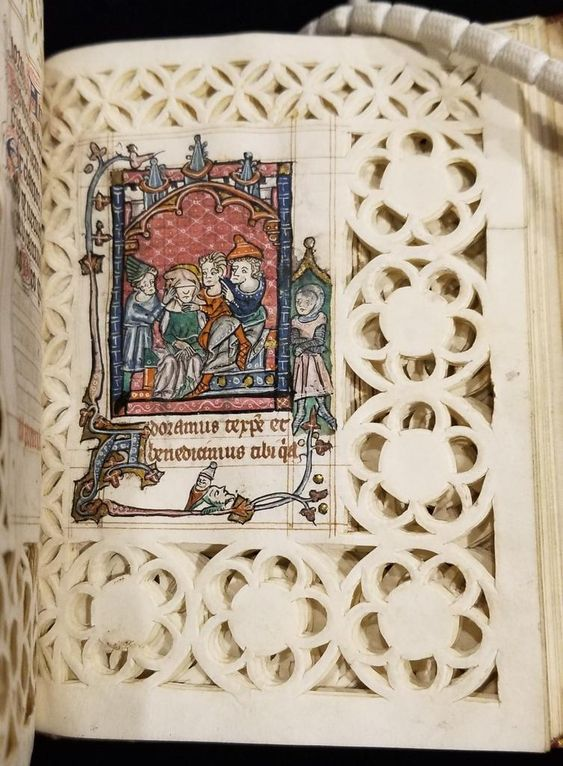 Adoramus te xp̄e et
benedicimus tibi q̄a